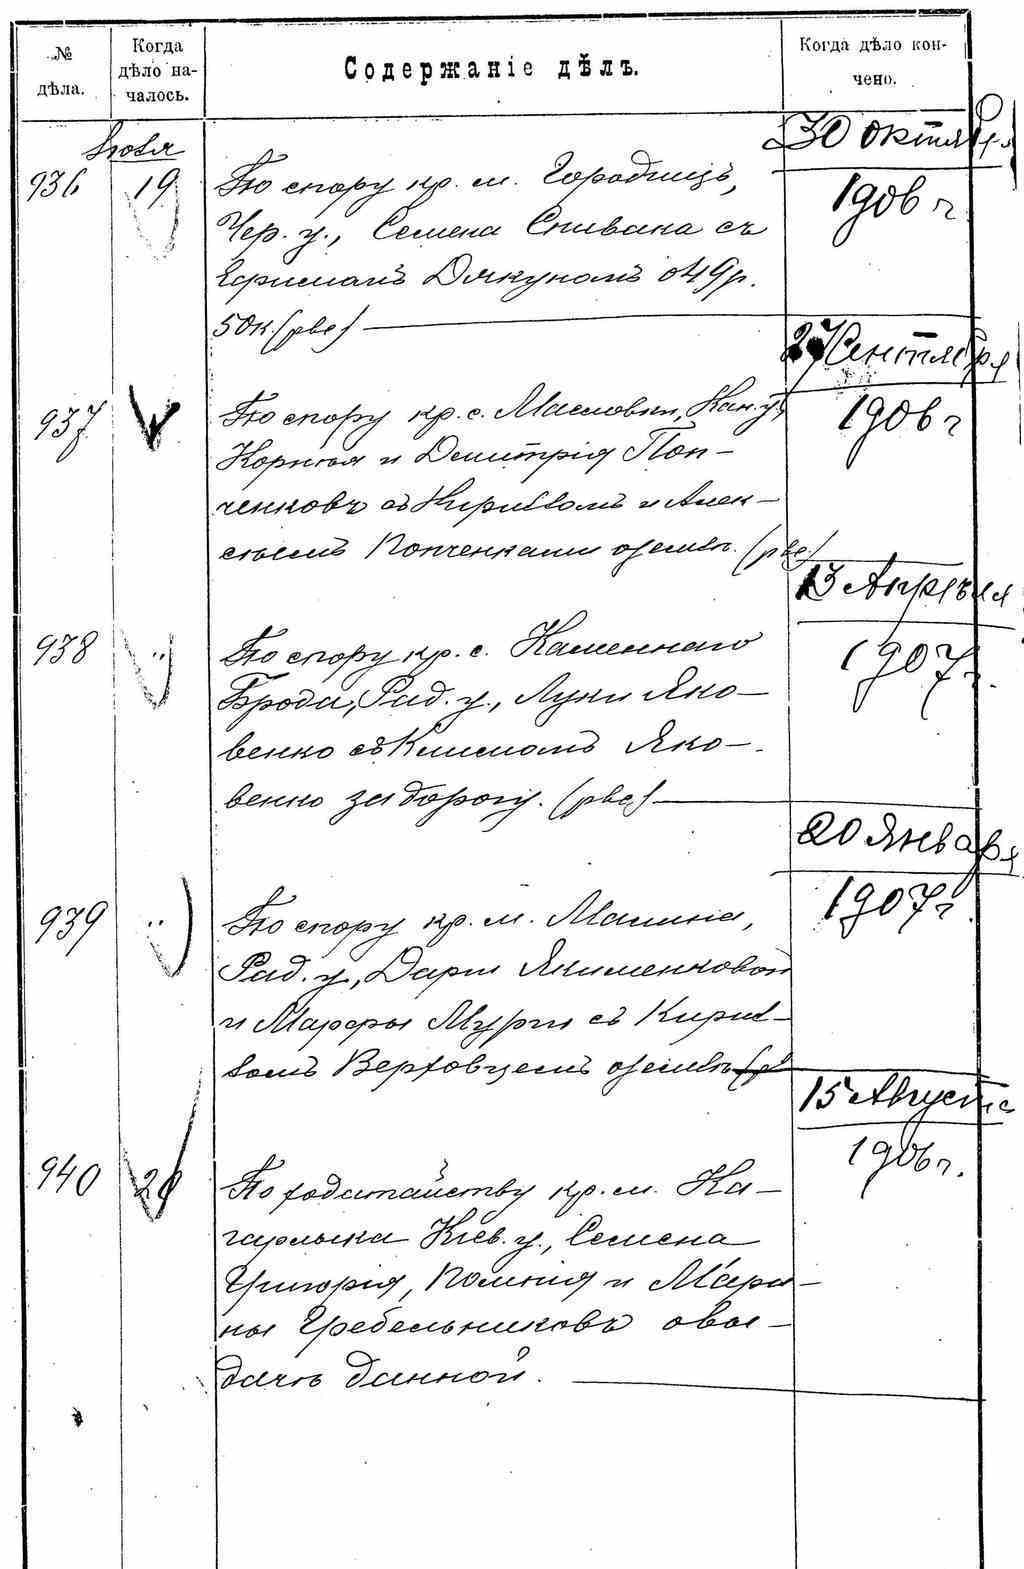 №
дѣла.
Когда
дѣло на-
чалось.
Содержаніе дѣлъ.
Когда дѣло кон-
чено.
30 октября
1906 г
936
19
По спору кр. м. Городищъ,
Чер. у., Семена Спивака съ
Дякуномъ о 49 р.
50 к. (рве)
27 Сентября
1906 г
937
По спору кр. с. Масловки, Кан. у.
Корнѣя и Дмитрія Поп-
ченковъ съ Кирилломъ и Алек-
сѣемъ Попченками о землѣ. (рве.)
13 Апрѣля
1907 г.
938
По спору кр. с. Каменнаго
Брода, Рад. у., Луки Яко-
венко съ Климомъ Яко-
венко за дорогу. (рве)
20 Января
1907 г.
939
По спору кр. м. Малина,
Рад. у., Дарьи Якименковой
и Марфы Мурги съ Кирил-
ломъ Верховцемъ о землѣ
15 Августа
1906 г.
940
20
По ходатайству кр. м. Ка-
гарлыка Кіев. у., Семена
Григорія, и Мари-
ны Гребельниковъ о вы-
дачѣ данной.